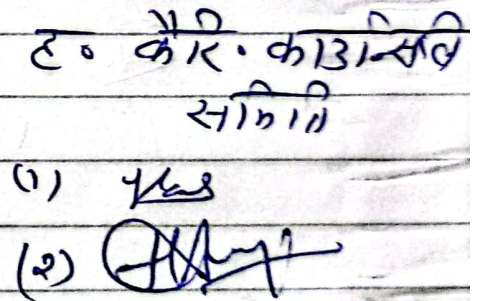 ह० कैरि. काउन्सिलिं
समिति
(१)
(२)